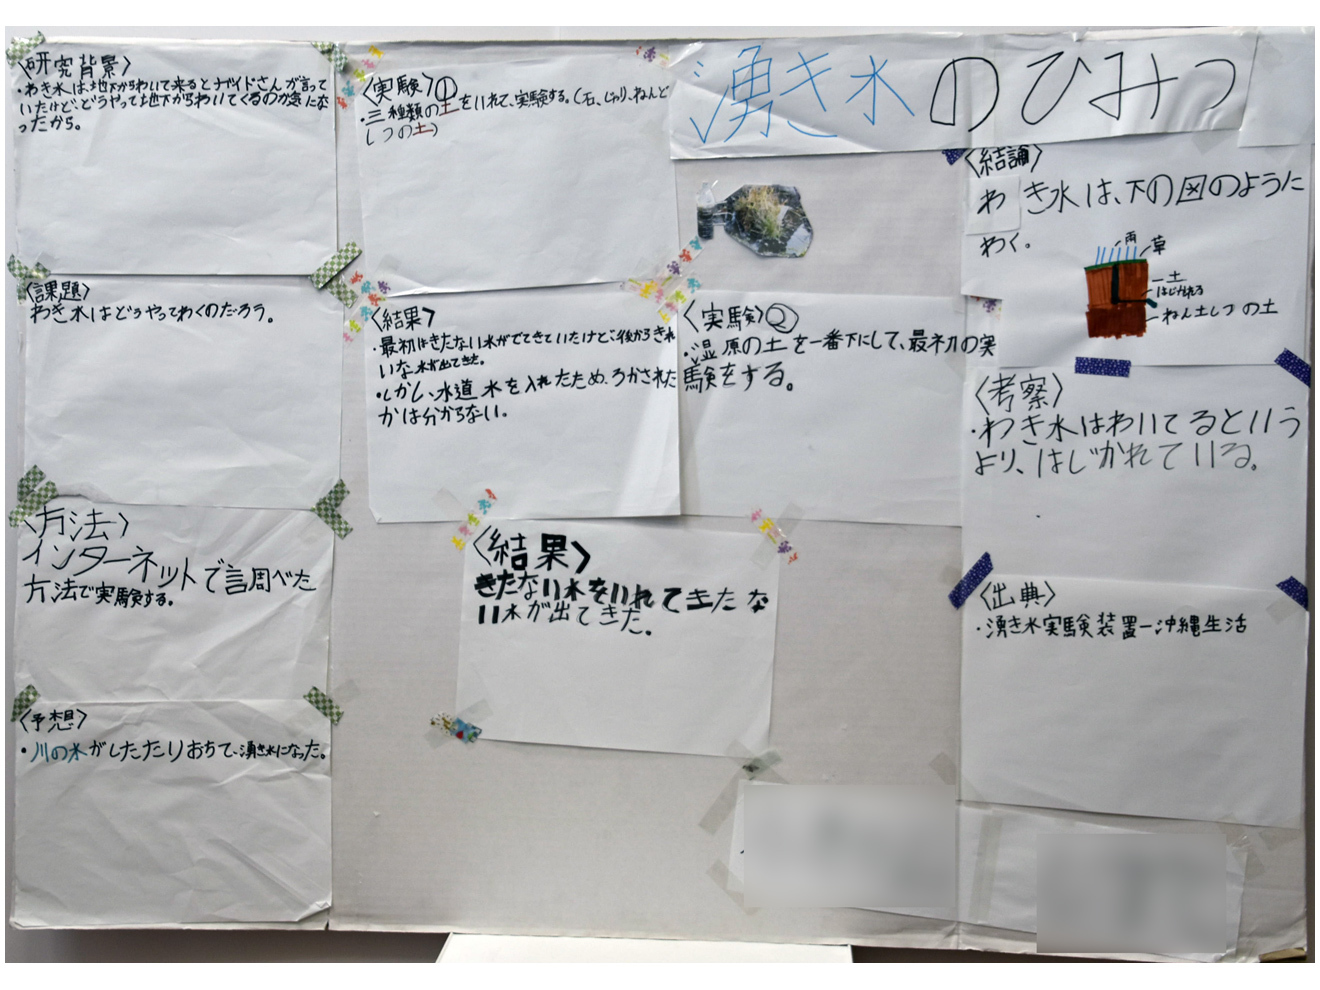 湧き水のひみつ
〈研究背景〉
・わき水は地下からわいて来るとガイドさんが言って
いたけど、どうやって地下からわいてくるのか気にな
ったから。
〈課題〉
わき水はどうやってわくのだろう。
〈方法〉
インターネットで調べた
方法で実験する。
〈予想〉
・川の水がしたたりおちて、湧き水になった。
〈実験〉①
・三種類の土をいれて、実験する。(石、じゃり、ねんど
しつの土)
〈結果〉
・最初はきたない水がでてきていたけど、後からきれ
いな水が出てきた。
・しかし、水道水を入れたため、ろかされた
かは分からない。
〈実験〉②
・湿原の土を一番下にして、最初の実
験をする。
〈結果〉
きたない水をいれてきたな
い水が出てきた。
〈結論〉
わき水は、下の図のように
わく。
雨
草
土
はじかれる
ねん土しつの土
〈考察〉
・わき水はわいてるという
より、はじかれている。
〈出典〉
・湧き水実験装置ー沖縄生活